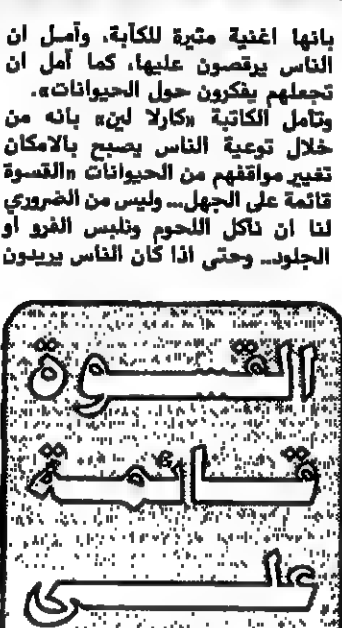 بانها اغنية مثيرة للكآبة، وآمل ان
الناس يرقصون عليها، كما آمل ان
تجعلهم يفكرون حول الحيوانات».
وتأمل الكاتبة «كارلا لين» بانه من
خلال توعية الناس يصبح بالامكان
تغيير مواقفهم من الحيوانات «القسوة
قائمة على الجهل... وليس من الضروري
لنا ان ناكل اللحوم ونلبس الفرو او
الجلود... وحتى اذا كان الناس يريدون
القسوة
قائمة
على